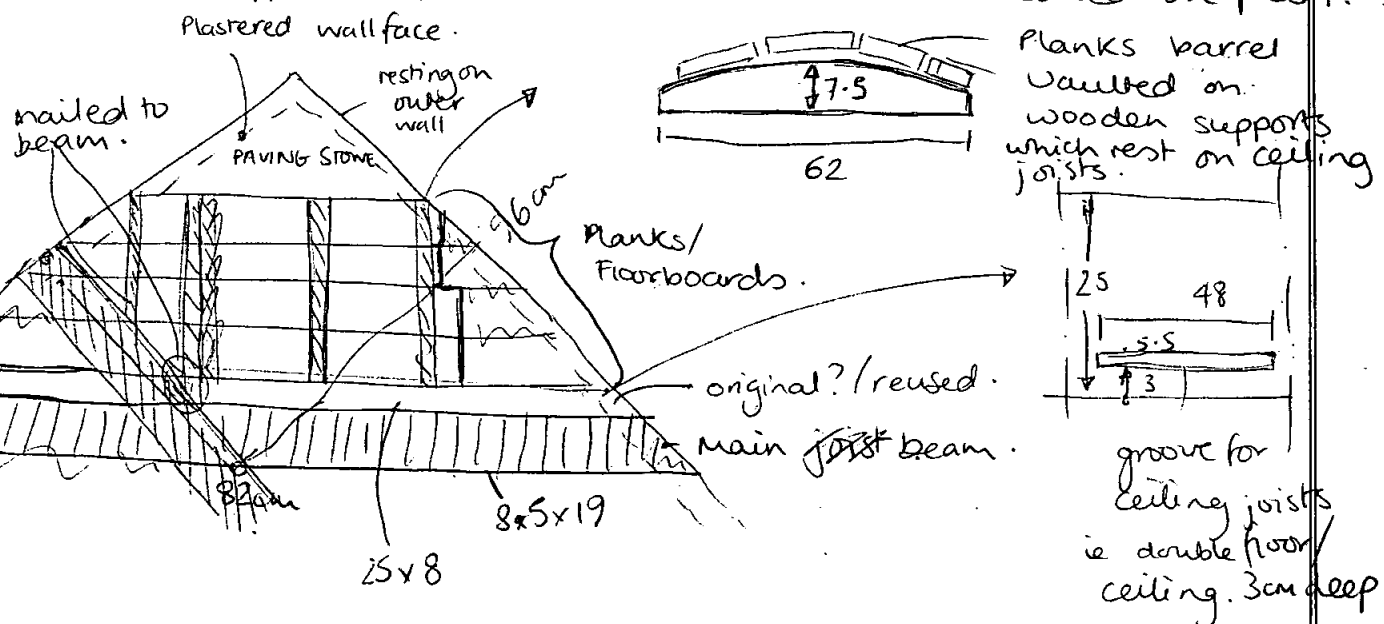 Plastered wall face.
resting on
outer
wall
nailed to
beam.
PAVING STONE
96cm
Planks/
Floorboards.
original?/reused.
Main joist beam.
82cm
8x5x19
25x8
7.5
62
Planks barrel
vaulted on
wooden supports
which rest on ceiling
joists.
25
48
5.5
3
groove for
ceiling joists
ie double floor/
ceiling. 3cm deep